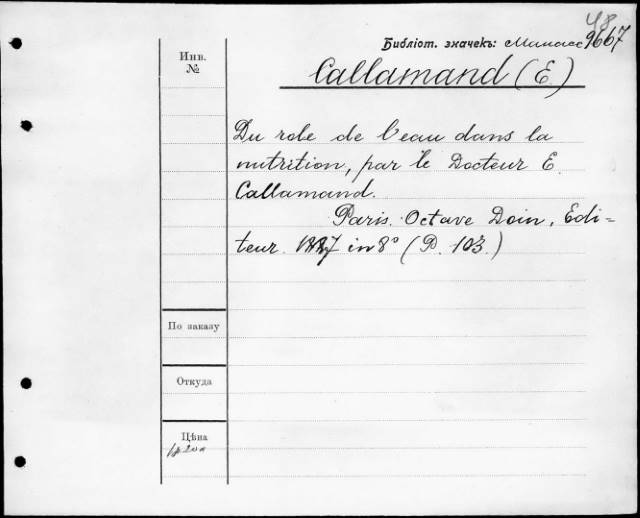 48
Библіот. значекъ: Манасс 9667
Инв.
№
Callamand (E)
Du role de l'eau dans la
nutrition, par le Docteur E.
Callamand.
Paris. Octave Doin, Edi=
teur. 1887 in 8° (P. 103.)
По заказу
Откуда
Цѣна